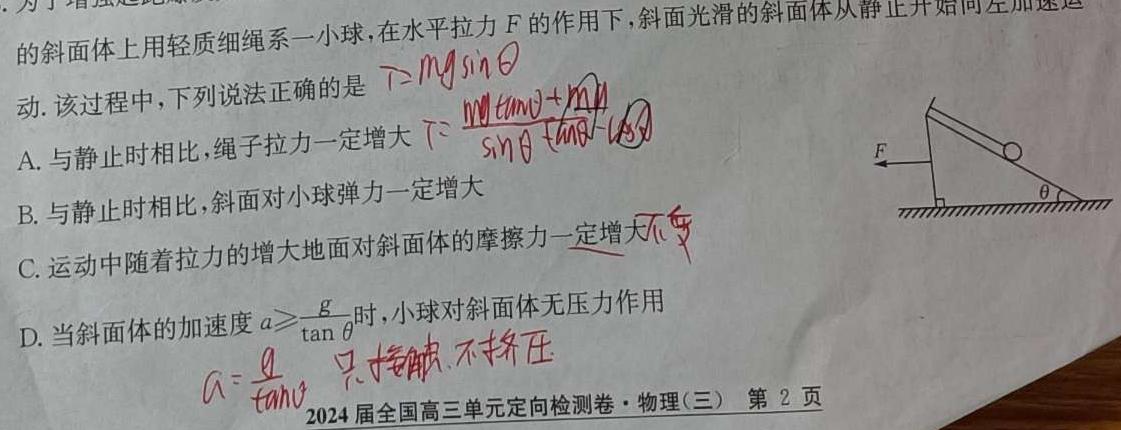 的斜面体上用轻质细绳系一小球,在水平拉力 F 的作用下,斜面光滑的斜面体从静止开始向左加速运
动. 该过程中,下列说法正确的是 T=mgsinθ
A. 与静止时相比,绳子拉力一定增大
B. 与静止时相比,斜面对小球弹力一定增大
C. 运动中随着拉力的增大地面对斜面体的摩擦力一定增大 不变
D. 当斜面体的加速度 a≥g/tan θ时,小球对斜面体无压力作用
a=g/tanθ 只接触.不挤压
F
θ
2024 届全国高三单元定向检测卷·物理(三) 第 2 页